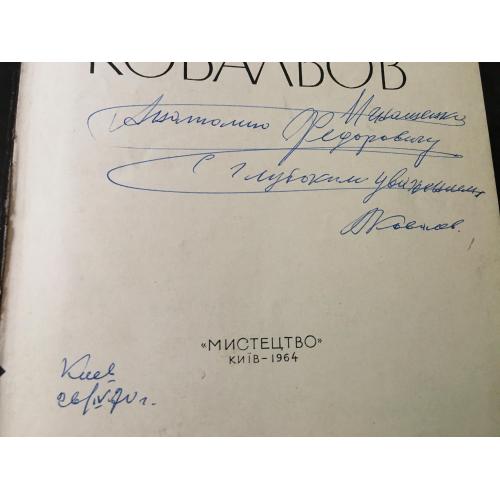 КОВАЛЬОВ
Анатолию Федоровичу
с глубоким уважением
АКовалев.
«МИСТЕЦТВО»
КИЇВ–1964
Киев
26/IV 70 г.